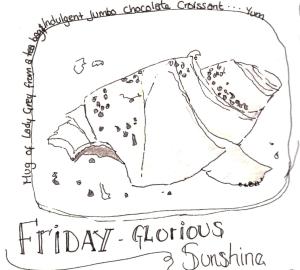 Mug of Lady Grey from a tea bag
Indulgent Jumbo chocolate Croissant... Yum
FRiDAY - GLORiOUS
& Sunshine